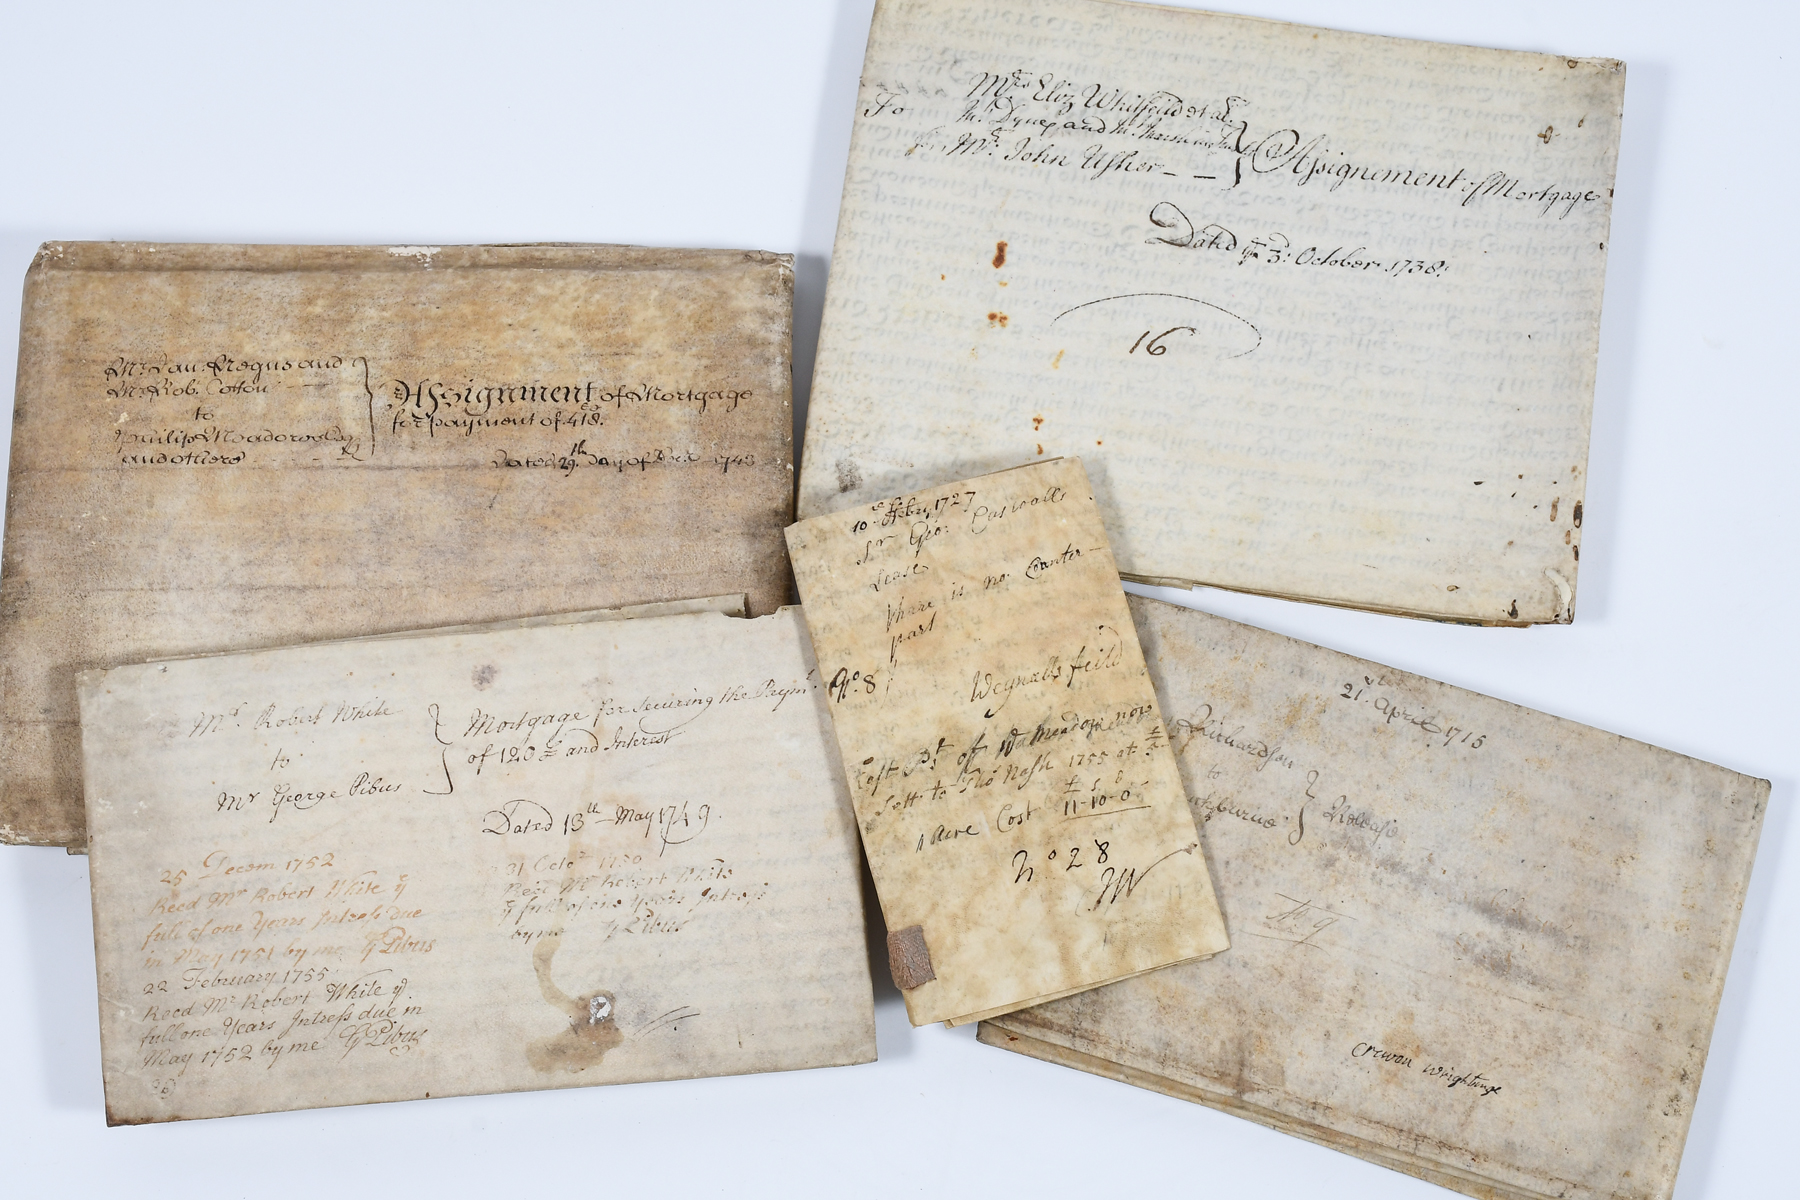 Mrs Eliz Whitfeild et al.
To Mr. Dynes and Mr.
for Mr. John Usher
Assignement of Mortgage
Dated ye 3d: October 1738:
16
Mr Fran: Negus and
Mr Rob. Cotton
to
Philip Meadows Esqr
and others
Assignment of Mortgage
for payment of 418.
Dated 29th. Day of 1743
Mr. Robert White
to
Mr George Pibus
Mortgage for Securing the Paymt.
of 120£ and Interest
Dated 13th May 1749.
25 Decem 1752
Recd Mr Robert White ye
full of one Years Intress due
in May 1751 by me G Pibus
22 February 1755
Recd Mr Robert White ye
full one Years Intress due in
May 1752 by me G Pibus
31 Octor 1750
Recd Mr Robert White
ye full of one Years Intress
by me G Pibus
10 Febry 1727
Sr Geo: Caswalls
Lease
thare is no Counter-
part
No. 8
Weynalls feild
East Pt of Meadow now
Lett to Tho Nash 1755 at
£ s d
1 acre Cost 11-10-0
No 28
JW
21st. April 1715
Richardson
to
burne
Release
No 9